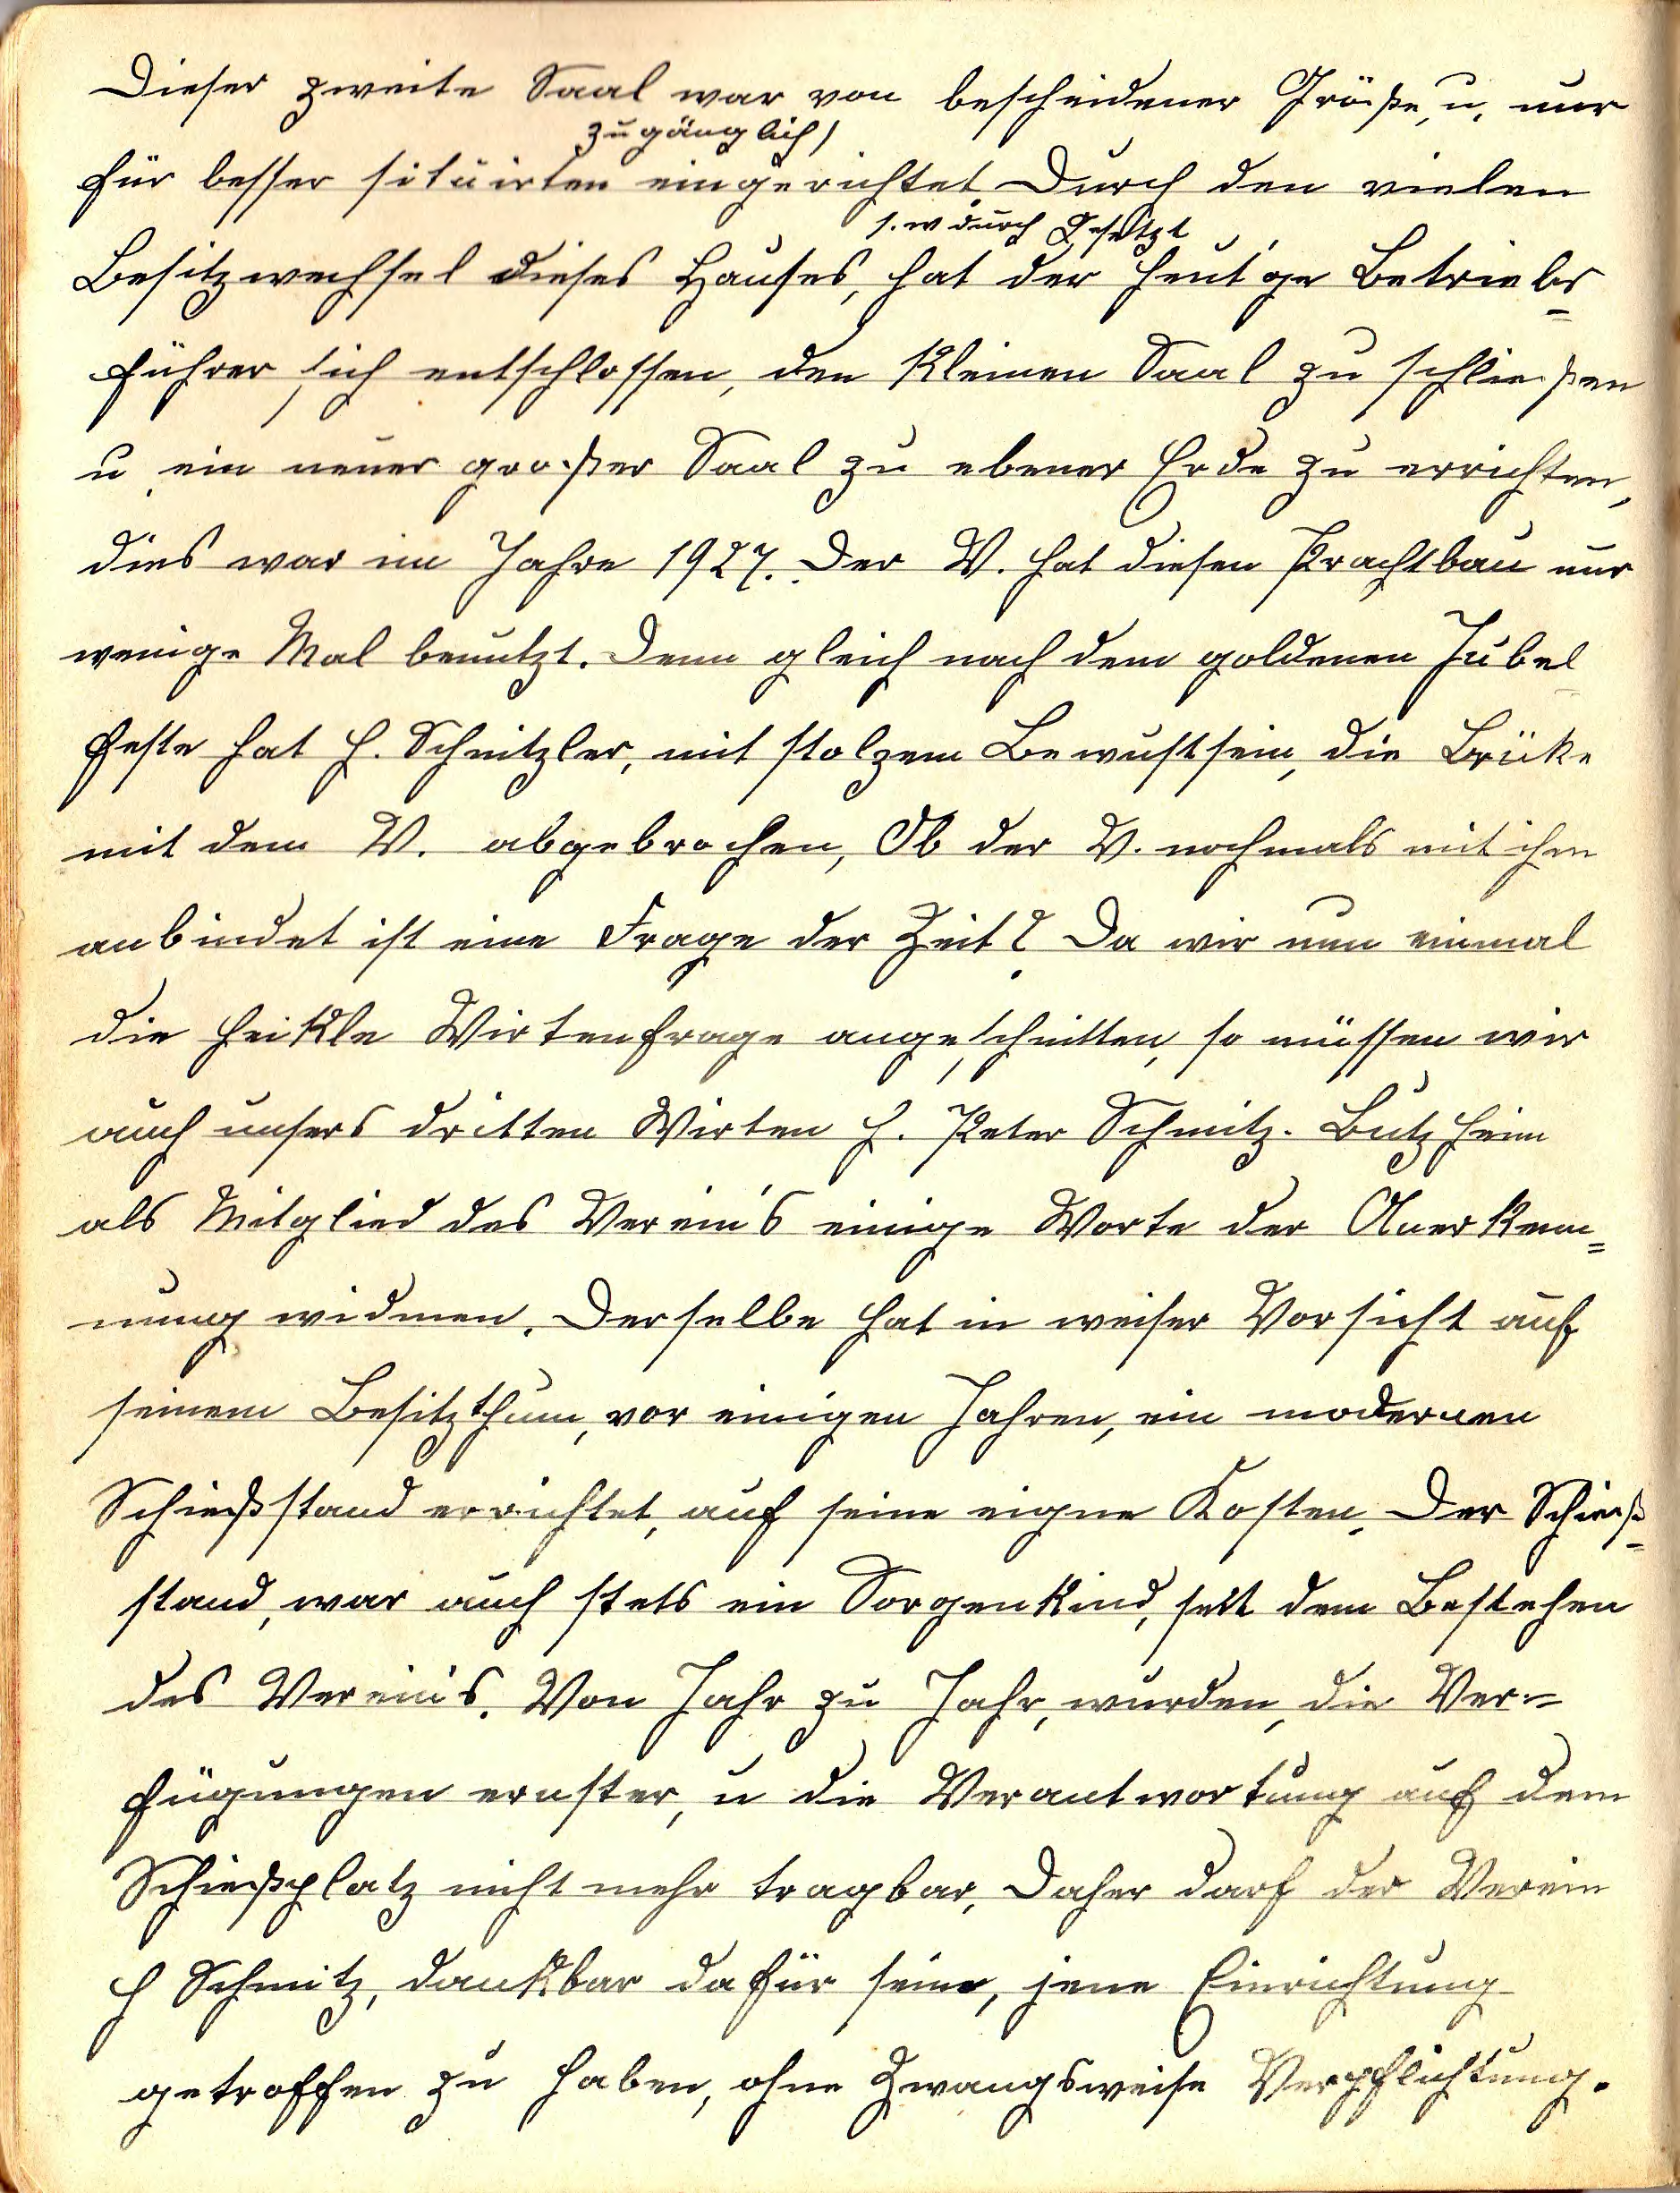 Dieser zweite Saal war von bescheidener Größe, u. nur
zugänglich)
für besser situirten eingerichtet. Durch den vielen
s. w durch Gesetzt
Besitzwechsel dieses Hauses, hat der heut'ge Betriebs=
führer sich entschlossen, den kleinen Saal zu schließen
u. ein neuer großer Saal zu ebener Erde zu errichten,
dies war im Jahre 1927. Der V. hat diesen Prachtbau nur
wenige Mal benutzt. Denn gleich nach dem goldenen Jubel
feste hat H. Schnitzler, mit stolzem Bewustsein, die Brüke
mit dem V. abgebrochen, Ob der V. nochmals mit ihm
anbindet ist eine Frage der Zeit? Da wir nun einmal
die heikle Wirtenfrage angeschnitten, so müssen wir
auch unsers dritten Wirten H. Peter Schmitz. Butzheim
als Mitglied des Verein's einige Worte der Anerkenn=
nung widmen. Derselbe hat in weiser Vorsicht auf
seinem Besitzthum, vor einigen Jahren, ein modernen
Schießstand errichtet, auf seine eigne Kosten. Der Schieß=
stand, war auch stets ein Sorgenkind, seit dem Bestehen
des Verein's. Von Jahr zu Jahr, wurden, die Ver=
fügungen ernster, u die Verantwortung auf dem
Schießplatz nicht mehr tragbar, Daher darf der Verein
H Schmitz, dankbar dafür sein, jene Einrichtung
getroffen zu haben, ohne Zwangsweise Verpflichtung.